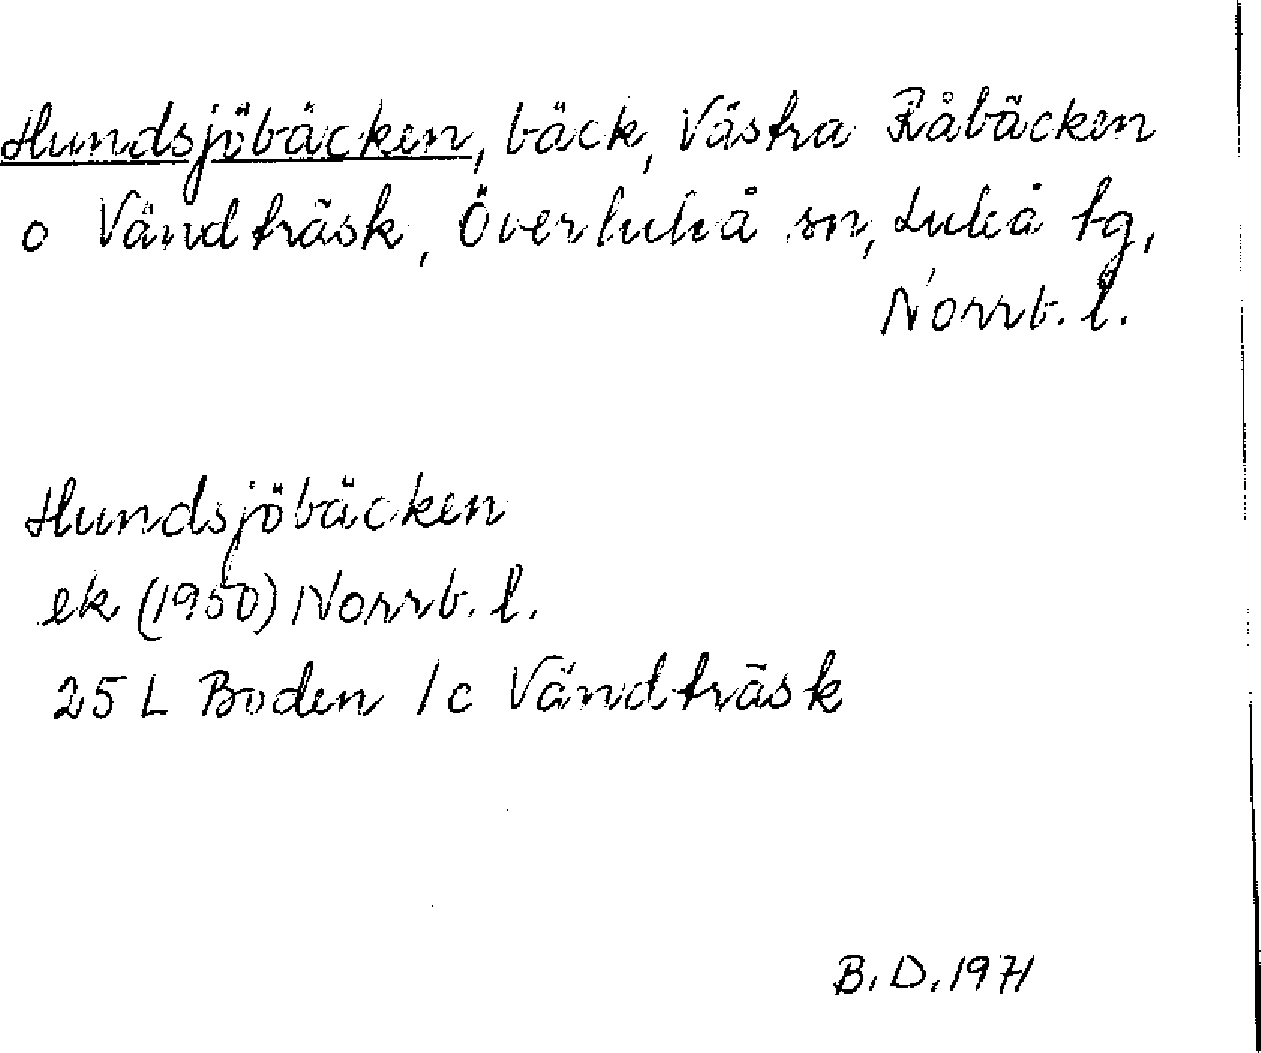 Hundsjöbäcken, bäck, Västra Råbäcken
o Vändträsk, Överluleå sn, Luleå tg,
Norrb. l.
Hundsjöbäcken
ek (1950) Norrb. l.
25 L Boden 1c Vändträsk
B. D. 1971